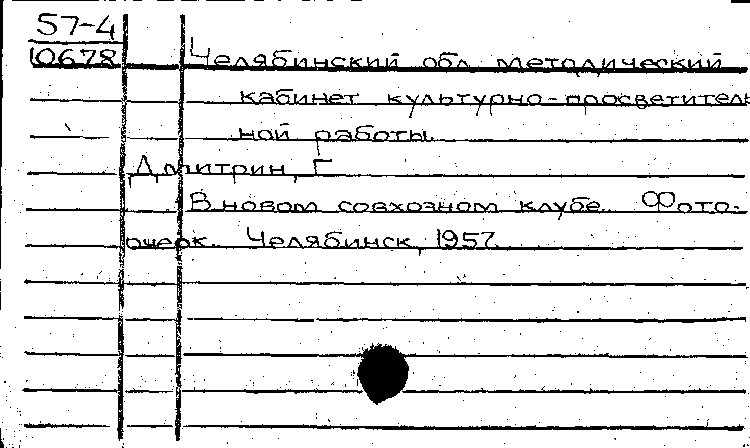 57-4
10678
Челябинский обл. методический
кабинет культурно-просветитель
ной работы.
Дмитрин, Г.
В новом совхозном клубе. Фото-
очерк. Челябинск, 1957.